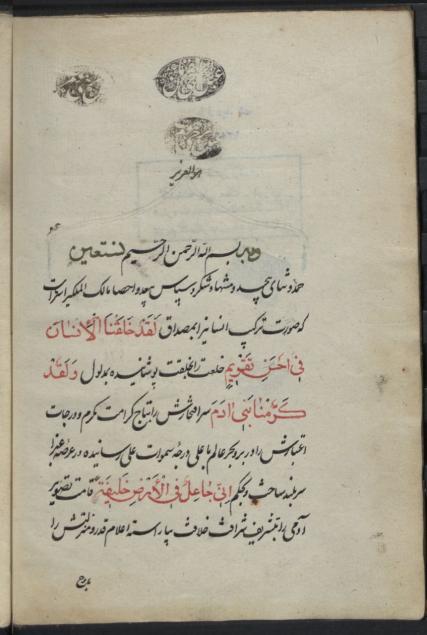 هوالعزیز
بسم الله الرحمن الرحیم وبه نستعین
حمد و ثنای بیحد و منتها و شکر و سپاس بیعد و احصا مالک الملکیرا سزاست
که صورت ترکیب انسانیرا بمصداق لَقَدْ خَلَقْنَا الْاِنْسانَ
فی اَحْسَنِ تَقْویمٍ خلعت خلقت پوشانیده بمدلول وَلَقَدْ
کَرَّمْنا بَنی ادَمَ سر افتخارش را بتاج کرامت مکرم و درجات
اعتبارش را در بر و بحر عالم باعلی درجهٔ سموات علی رسانیده در عرصهٔ غبرا
سربلند ساخت و بحکم اِنّی جاعِلٌ فِی الْاَرْضِ خَلیفَةً قامت تصویر
آدمی را بتشریف شرافت خلافت بیاراسته اعلام قدر و منزلتش را